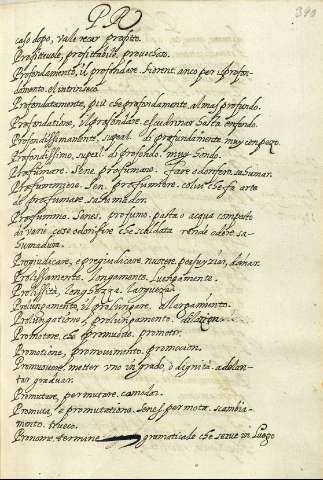 PRO
390
cato dopo, vale recar profito.
Profitteuole, profittabile, prouechoso.
Profondamento, il profondare. fiorent. anco per profon-
damento. el intrinseco.
Profondatamente, piu che profondamente, al mas profundo.
Profondatione, il profondare. el cubrir hasta en fondo.
Profondissimamente, superl. di profundamente muy con peço.
Profondissimo, superl. di profondo. muy hondo.
Profumare. Sene. profumare. fare odorifero. sahumar.
Profumiero. Sen. profumiere. colui che fa arte
di profumare. sahumador.
Profummo. Senes. profumo. pasta o acqua composta
di varii cose odorifere che scaldata rende odore sa-
humadura.
Progiudicare, e pregiudicare nuocere. perjuyzian, dañar.
Prolissamente. longamente. luengamente.
Prolissità. longhezza. largueza.
Prolongamento, il prolongare. allargamento.
Prolongatione, prolongamento. dilacion.
Promotore, che promuoue. promotor.
Promotione, promouimento. promoccion.
Promuouere, metter vno in grado, o dignità. adelan-
tar graduar.
Promutare, permutare. camodar.
Promuta, e promutatione. Senes. permota. scambia-
mento. trueco.
Pronome, termine gramaticale che serue in luogo